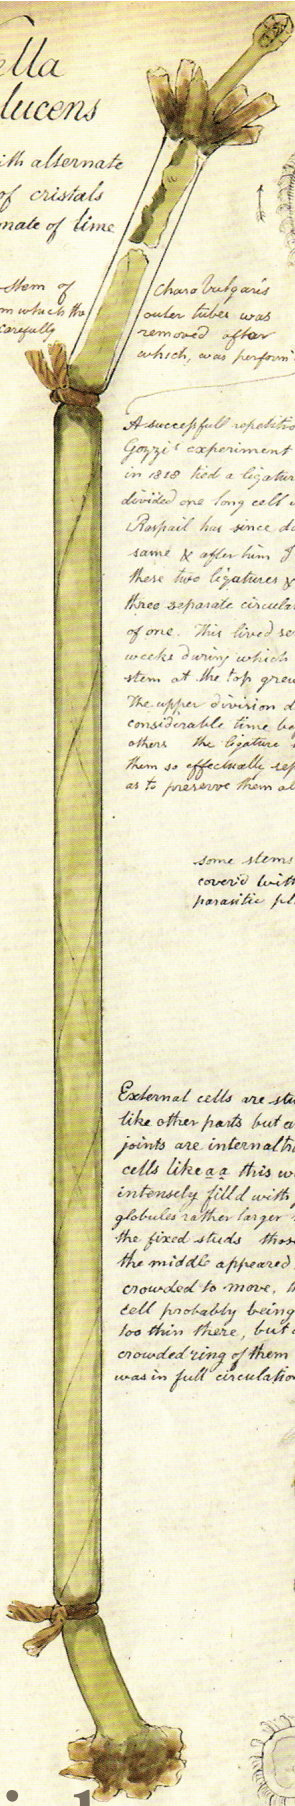 ella
lucens
ith alternate
of cristals
nate of lime
stem of
m which the
carefully
Chara Vulgaris
outer tubes was
removed after
which, was perform'
A successfull repetitio
Gozzi's experiment
in 1818 tied a ligatur
divided one long cell i
Raspail has since do
same & after him I
these two ligatures &
three separate circula
of one. This lived se
weeks during which
stem at the top grew
The upper division d
considerable time be
others the ligature
them so effectually sep
as to preserve them al
some stems
cover'd with
parasitic pl
External cells are stu
like other parts but a
joints are internal tu
cells like a a this w
intensely fill'd with
globules rather larger
the fixed studs those
the middle appeared
crowded to move,
cell probably being
too thin there, but a
crowded ring of them
was in full circulation